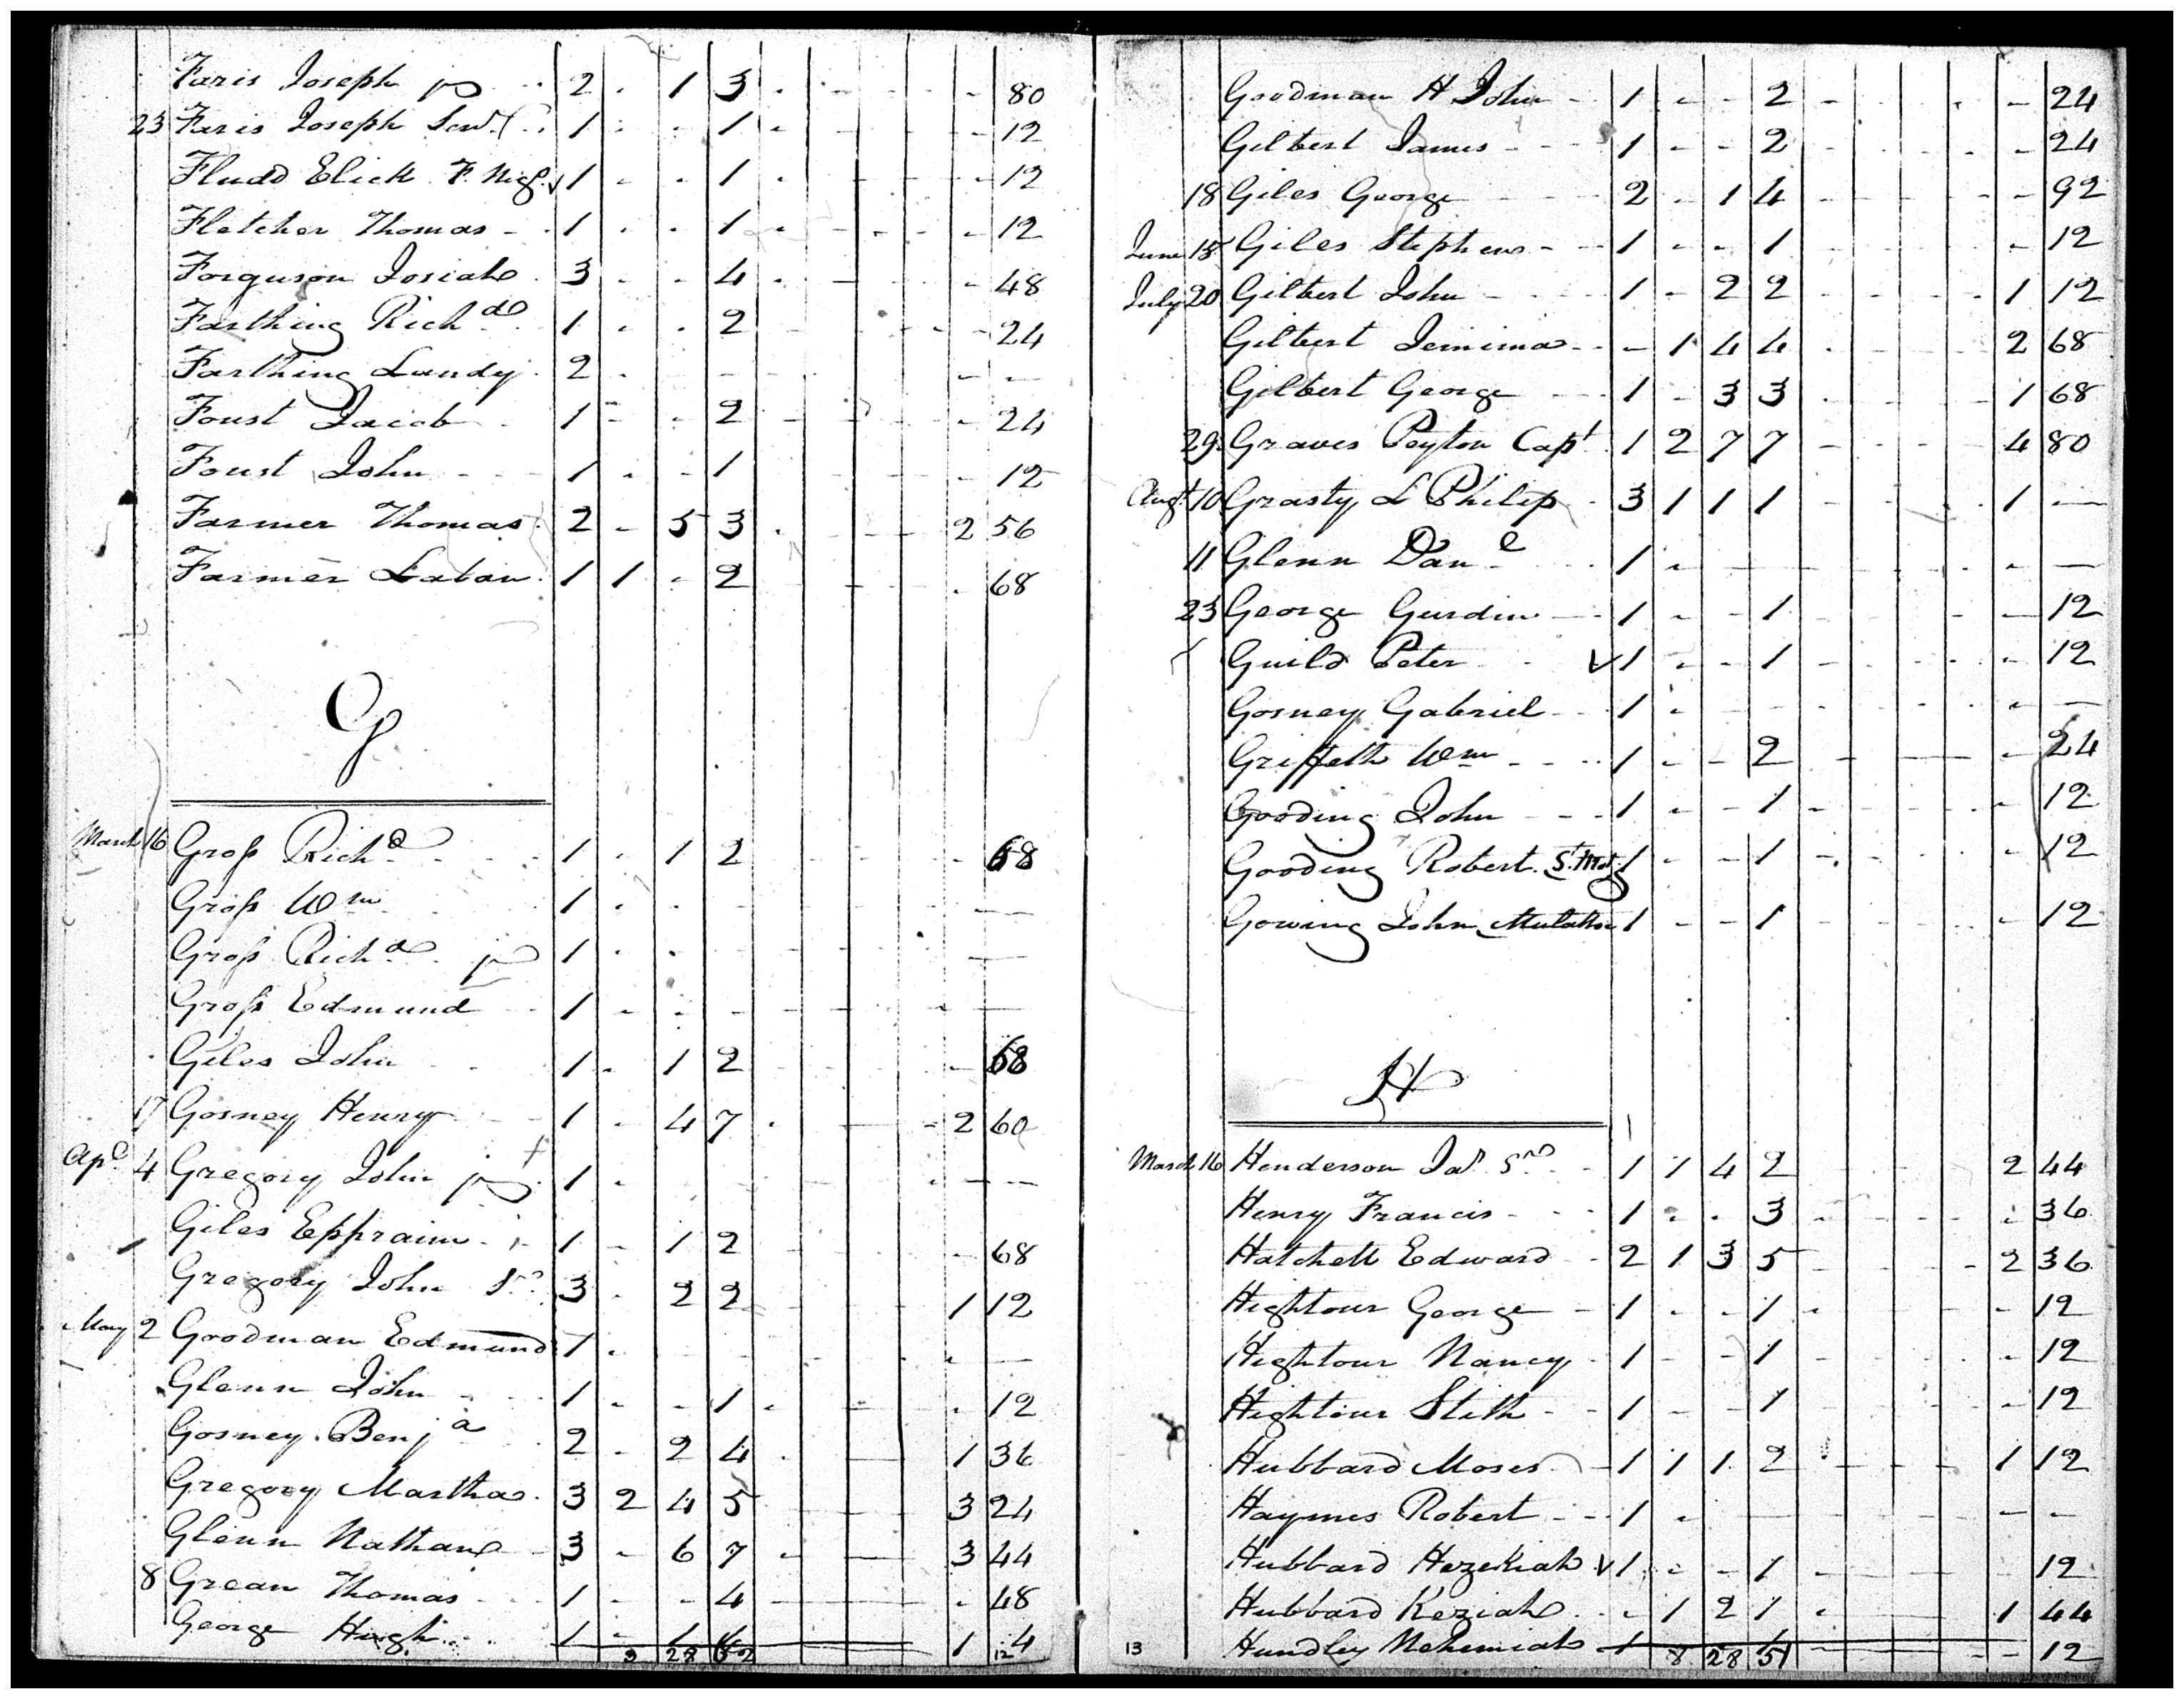 Faris Joseph jr 2 . 1 3 . - - - - 80
23 Faris Joseph Senr. 1 . - 1 . - - - - 12
Fludd Elick F. Neg. 1 - . 1 . - - - - 12
Fletcher Thomas - 1 . . 1 . - - - - 12
Forguson Josiah 3 - - 4 . - - - - 48
Farthing Richd 1 . . 2 - - - - - 24
Farthing Landy 2 . - - - - - - - -
Foust Jacob 1 - - 2 - - - - - 24
Foust John 1 . - 1 - - - - - 12
Farmer Thomas 2 - 5 3 . - - - 2 56
Farmer Laban 1 1 - 2 - - - - . 68
G
March 16 Gross Richd 1 . 1 2 - - - - - 68
Gross Wm 1 . - - - - - - - -
Gross Richd jr 1 . - - - - - - - -
Gross Edmund 1 - - - - - - - - -
Giles John 1 . 1 2 - - - - - 68
17 Gosney Henry 1 . 4 7 . - - - 2 60
Apl. 4 Gregory John jr 1 . - - - - - - - -
Giles Ephraim 1 - 1 2 - - - - - 68
Gregory John Sr. 3 . 2 2 - - - - 1 12
May 2 Goodman Edmund 1 . - - - - - - - -
Glenn John 1 . - 1 . - - - . 12
Gosney Benja 2 - 2 4 . - - - 1 36
Gregory Martha 3 2 4 5 - - - - 3 24
Glenn Nathan 3 - 6 7 - - - - 3 44
8 Grean Thomas 1 - - 4 - - - - . 48
George Hugh 1 - 1 1 4
3 28 62 12
Goodman H John - 1 - - 2 - - - - - 24
Gilbert James - - 1 - - 2 - - - - - 24
18 Giles George 2 - 1 4 - - - - - 92
June 15 Giles Stephen - - 1 - - 1 - - - - - 12
July 20 Gilbert John - 1 - 2 2 - - - - 1 12
Gilbert Jemima - - 1 4 4 . - - - 2 68
Gilbert George 1 - 3 3 . - - - 1 68
29 Graves Peyton Capt. 1 2 7 7 - - - - 4 80
Augt. 10 Grasty L Philip 3 1 1 1 - - - - 1 -
11 Glenn Danl 1 - - - - - - - - -
23 George Gurdin 1 - - 1 - - - - - 12
Guild Peter 1 - - 1 - - - - - 12
Gosney Gabriel 1 - - - - - - - - -
Griffeth Wm 1 - - 2 - - - - - 24
Gooding John 1 - - 1 - - - - - 12
Gooding Robert 1 - - 1 - - - - - 12
Gowing John Mulatto 1 - - 1 - - - - - 12
H
March 16 Henderson Jas. Sr. 1 1 4 2 - - - - 2 44
Henry Francis 1 - . 3 - - - - - 36
Hatchett Edward 2 1 3 5 - - - - 2 36
Hightour George 1 - - 1 - - - - - 12
Hightour Nancy 1 - - 1 - - - - - 12
Hightour Stith 1 - - 1 - - - - - 12
Hubbard Moses 1 1 1 2 - - - - 1 12
Haymes Robert 1 - - - - - - - - -
Hubbard Hezekiah 1 - - 1 - - - - - 12
Hubbard Keziah - 1 2 1 - - - - 1 44
13 Hundley Nehemiah 1 1 - - - - - 12
8 28 51